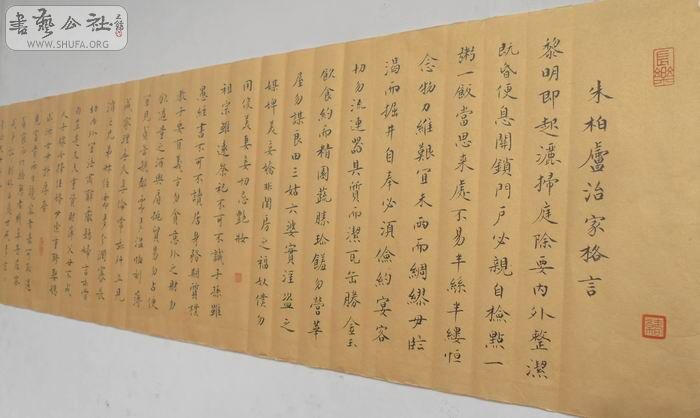 書藝公社
WWW.SHUFA.ORG
長樂
朱柏廬治家格言
黎明即起灑掃庭除要内外整潔
既昏便息關鎖門戶必親自檢點一
粥一飯當思來處不易半絲半縷恒
念物力維艱宜未雨而綢繆毋臨
渴而掘井自奉必須儉約宴客
切勿流連器具質而潔瓦缶勝金玉
飲食約而精園蔬勝珍饈勿營華
屋勿謀良田三姑六婆實淫盜之
媒婢美妾嬌非閨房之福奴僕勿
用俊美妻妾切忌艷妝
祖宗雖遠祭祀不可不誠子孫雖
愚經書不可不讀居身務期質樸
教子要有義方勿貪意外之財勿
飲過量之酒與肩挑貿易勿占便
宜見貧苦親鄰須多溫恤刻薄
成家理無久享倫常乖舛立見
消亡兄弟叔侄須多分潤寡長
幼内外宜法肅辭嚴聽婦言乖骨
肉豈是丈夫重資財薄父母不成
人子